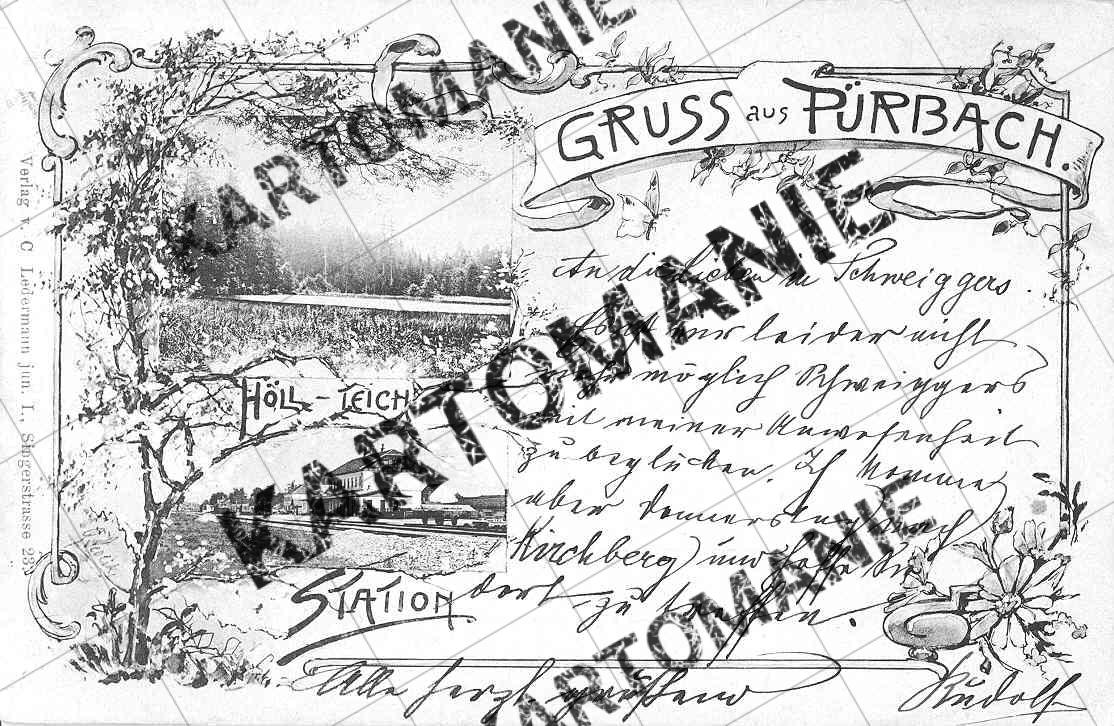 GRUSS aus PÜRBACH.
HÖLL-TEICH
STATION
Verlag v. C. Ledermann jun. I., Singerstrasse 23
An die Lieben in Schweiggers.
Es ist mir leider nicht
möglich Schweiggers
mit meiner Anwesenheit
zu beglücken. Ich komme
aber Donnerstag nach
Kirchberg) und hoffe Sie
dort zu treffen.
Alle herzl. grüßend
Rudolf
KARTOMANIE
KARTOMANIE
KARTOMANIE